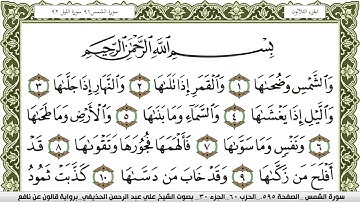 الجزء الثلاثون سورة الشمس ٩١ سورة الليل ٩٢
بِسْمِ اللَّهِ الرَّحْمَٰنِ الرَّحِيمِ
وَالشَّمْسِ وَضُحَىٰهَا ١ وَالْقَمَرِ إِذَا تَلَىٰهَا ٢ وَالنَّهَارِ إِذَا جَلَّىٰهَا ٣
وَالَّيْلِ إِذَا يَغْشَىٰهَا ٤ وَالسَّمَآءِ وَمَا بَنَىٰهَا ٥ وَالْأَرْضِ وَمَا طَحَىٰهَا
٦ وَنَفْسٍ وَمَا سَوَّىٰهَا ٧ فَأَلْهَمَهَا فُجُورَهَا وَتَقْوَىٰهَا ٨ قَدْ
أَفْلَحَ مَن زَكَّىٰهَا ٩ وَقَدْ خَابَ مَن دَسَّىٰهَا ١٠ كَذَّبَتْ ثَمُودُ
سورة الشمس . الصفحة ٥٩٥ . الحزب ٦٠ . الجزء ٣٠ . بصوت الشيخ علي عبد الرحمن الحذيفي . برواية قالون عن نافع